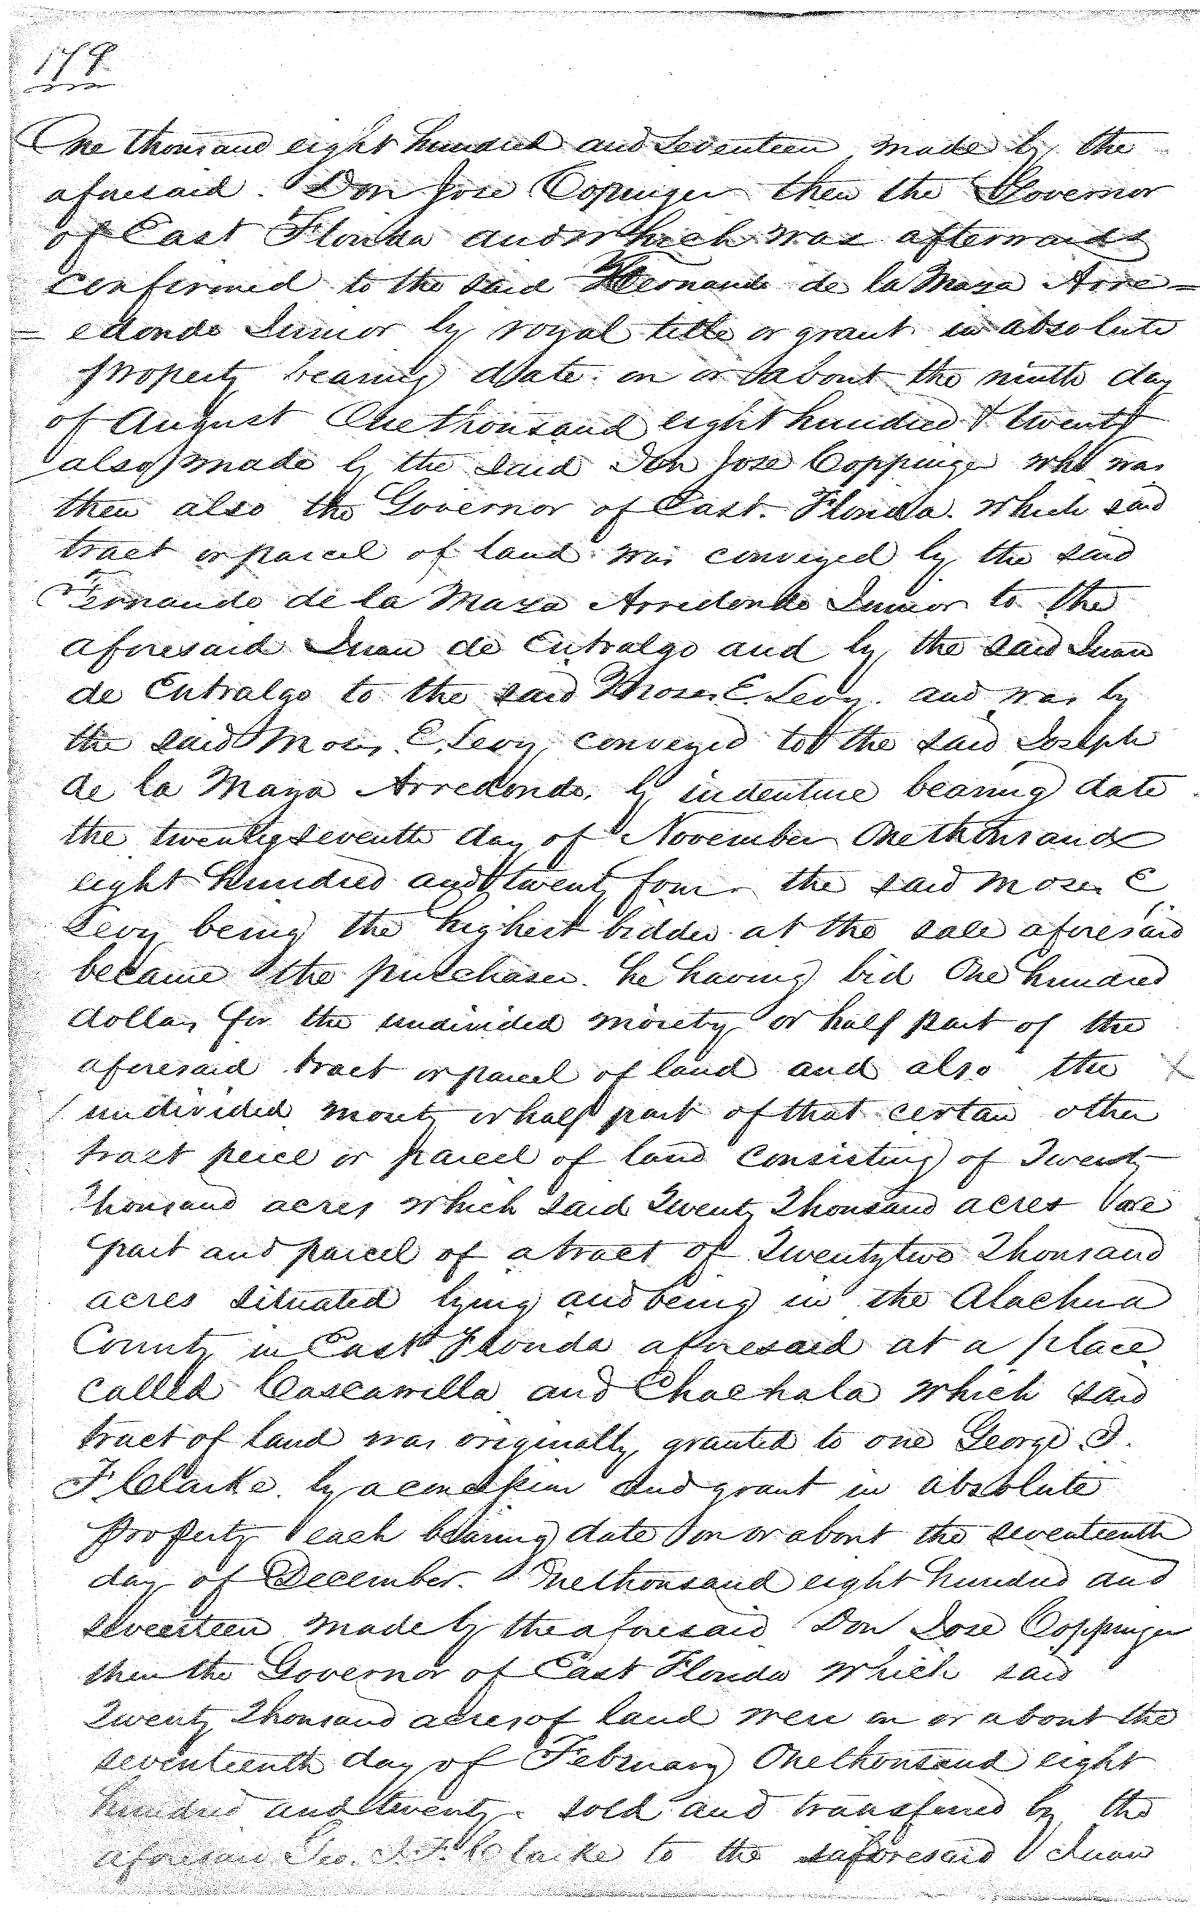 179
One thousand eight hundred and seventeen made by the
aforesaid. Don Jose Copinger then the Governor
of East Florida and which was afterwards
confirmed to the said Fernando de la Maza Arre=
=edondo Junior by royal title or grant in absolute
property bearing date on or about the ninth day
of August One thousand eight hundred & twenty
also made by the said Don Jose Coppinger who was
then also the Governor of East Florida. which said
tract or parcel of land was conveyed by the said
Fernando de la Maza Arredondo Junior to the
aforesaid Juan de Entralgo and by the said Juan
de Entralgo to the said Moses E. Levy. and was by
the said Moses E. Levy conveyed to the said Joseph
de la Maza Arredondo, by indenture bearing date
the twenty seventh day of November One thousand
eight hundred and twenty four. the said Moses E
Levy being the highest bidder at the sale aforesaid
became the purchaser. he having bid One hundred
dollars for the undivided moiety or half part of the
aforesaid tract or parcel of land and also the X
undivided moiety or half part of that certain other
tract peice or parcel of land consisting of Twenty
Thousand acres which said Twenty Thousand acres are
part and parcel of a tract of Twenty two Thousand
acres situated lying and being in the Alachua
County in East Florida aforesaid at a place
called Cascawilla and Chachala which said
tract of land was originally granted to one George J.
F. Clarke. by a concession and grant in absolute
property each bearing date on or about the seventeenth
day of December. One thousand eight hundred and
seventeen made by the aforesaid Don Jose Coppinger
then the Governor of East Florida which said
Twenty Thousand acres of land were on or about the
seventeenth day of February One thousand eight
hundred and twenty. sold and transferred by the
aforesaid Geo. J. F. Clarke to the aforesaid Juan